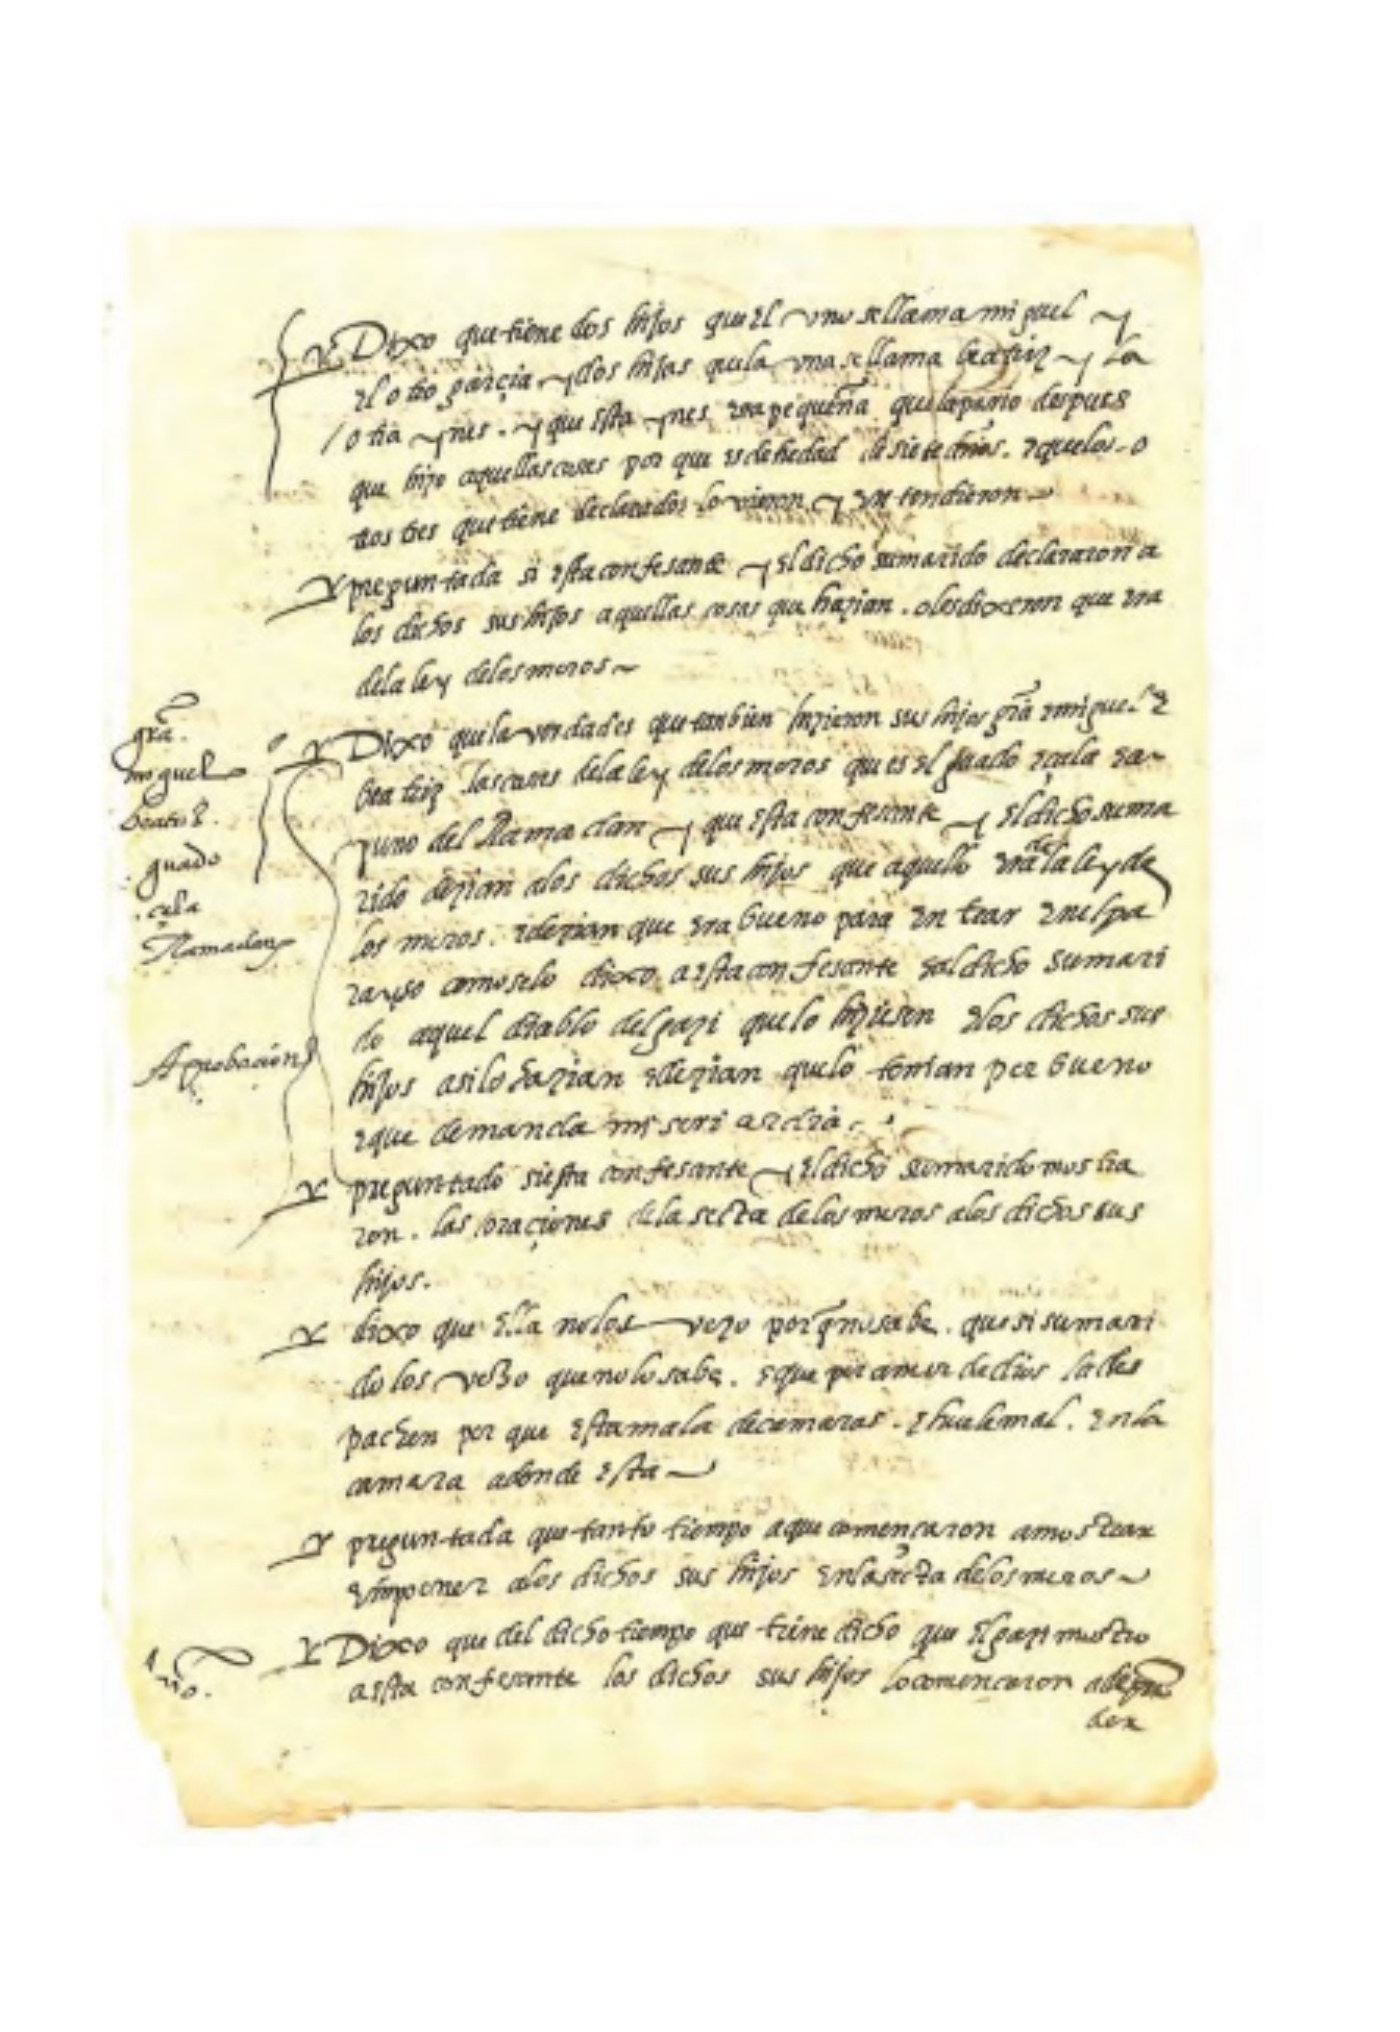 Y Dixo que tiene dos hijos que el uno se llama miguel y
el otro garçia. y dos hijas que la una se llama beatriz y la
/ otra ynes. y que esta ynes era pequeña que la pario despues
que hizo aquellas cosas por que es de hedad de siete años. e que los o
tros tres que tiene declarados lo vieron y entendieron
Y preguntada si esta confesante y el dicho su marido declararon a
los dichos sus hijos aquellas cosas que hazian. o les dixeron que era
de la ley de los moros
grã.
miguel
beatriz.
guado
çala
Ramadan
Y Dixo que la verdad es que tanbien hizieron sus hijos grã e miguel e
beatriz las cosas de la ley de los moros que es el guado e çala e a
yuno del Ramadan y que esta confesante y el dicho su ma
rido dezian a los dichos sus hijos que aquello era de la ley de
los moros. e dezian que era bueno para entrar en el pa
rayso como se lo dixo a esta confesante e al dicho su mari
do aquel diablo del gazi que lo hiziesen e los dichos sus
Aprobacion
hijos asi lo hazian e dezian que lo tenian por bueno
e que demanda misericordia.
Y preguntado si esta confesante y el dicho su marido mostra
ron. las oraçiones de la secta de los moros a los dichos sus
hijos.
Y dixo que ella no los vezo porq̃ no sabe. que si su mari
do los vezo que no lo sabe. e que por amor de dios la des
pachen por que esta mala de camaras. e huele mal. en la
camara adonde esta
Y preguntada que tanto tiempo a que començaron a mostrar
e ynponer a los dichos sus hijos en la secta de los moros
Y Dixo que del dicho tiempo que tiene dicho que el gazi mostro
a esta confesante los dichos sus hijos lo començaron a depren
der